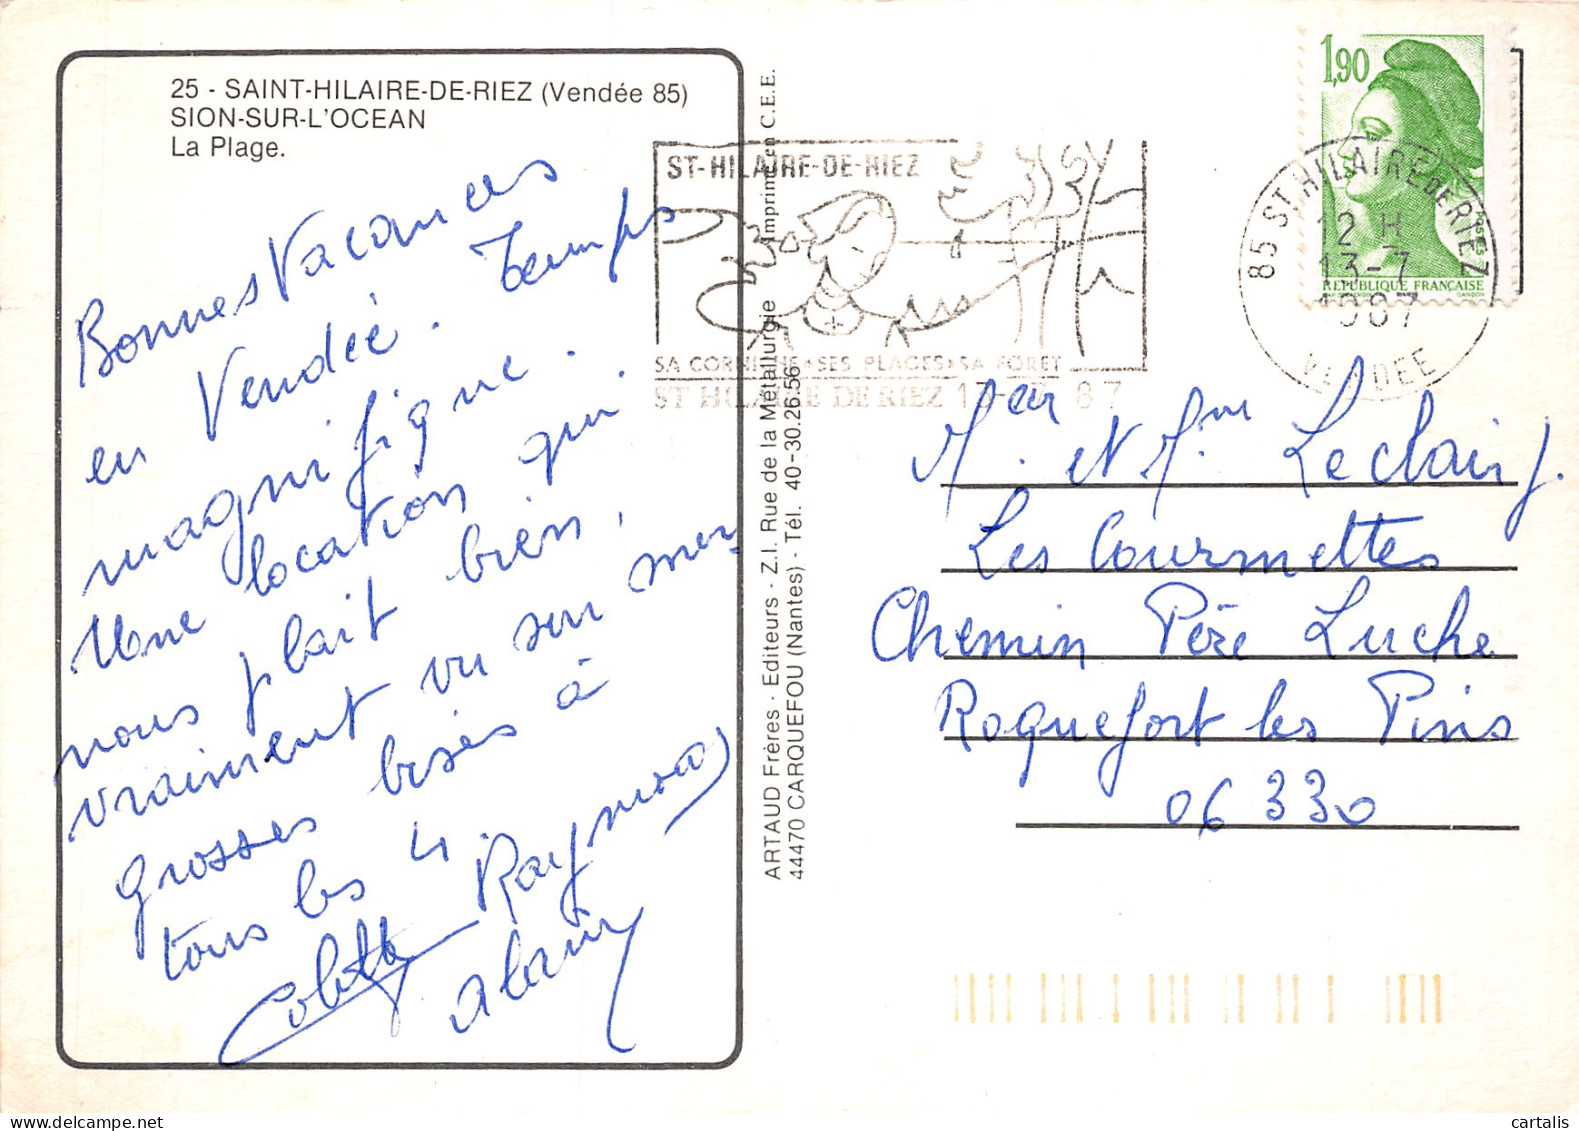 25 - SAINT-HILAIRE-DE-RIEZ (Vendée 85)
SION-SUR-L'OCEAN
La Plage.
Bonnes Vacances
en Vendée. Temps
magnifique.
Une location qui
nous plait bien,
vraiment vu sur mer,
grosses bises à
tous les 4.
Colette Raymond
Alain
ARTAUD Frères - Editeurs - Z.I. Rue de la Métallurgie Imprimé en C.E.E.
44470 CARQUEFOU (Nantes) - Tél. 40-30.26.56
ST-HILAIRE-DE-RIEZ
SA CORNICHE • SES PLAGES • SA FORET
ST HILAIRE DE RIEZ 13-7 87
1,90
POSTES
REPUBLIQUE FRANÇAISE
GANDON
85 ST HILAIRE DE RIEZ
12 H
13-7
1987
VENDEE
Mr et Mme Leclair
Les Courmettes
Chemin Père Luche
Roquefort les Pins
06330
cartalis